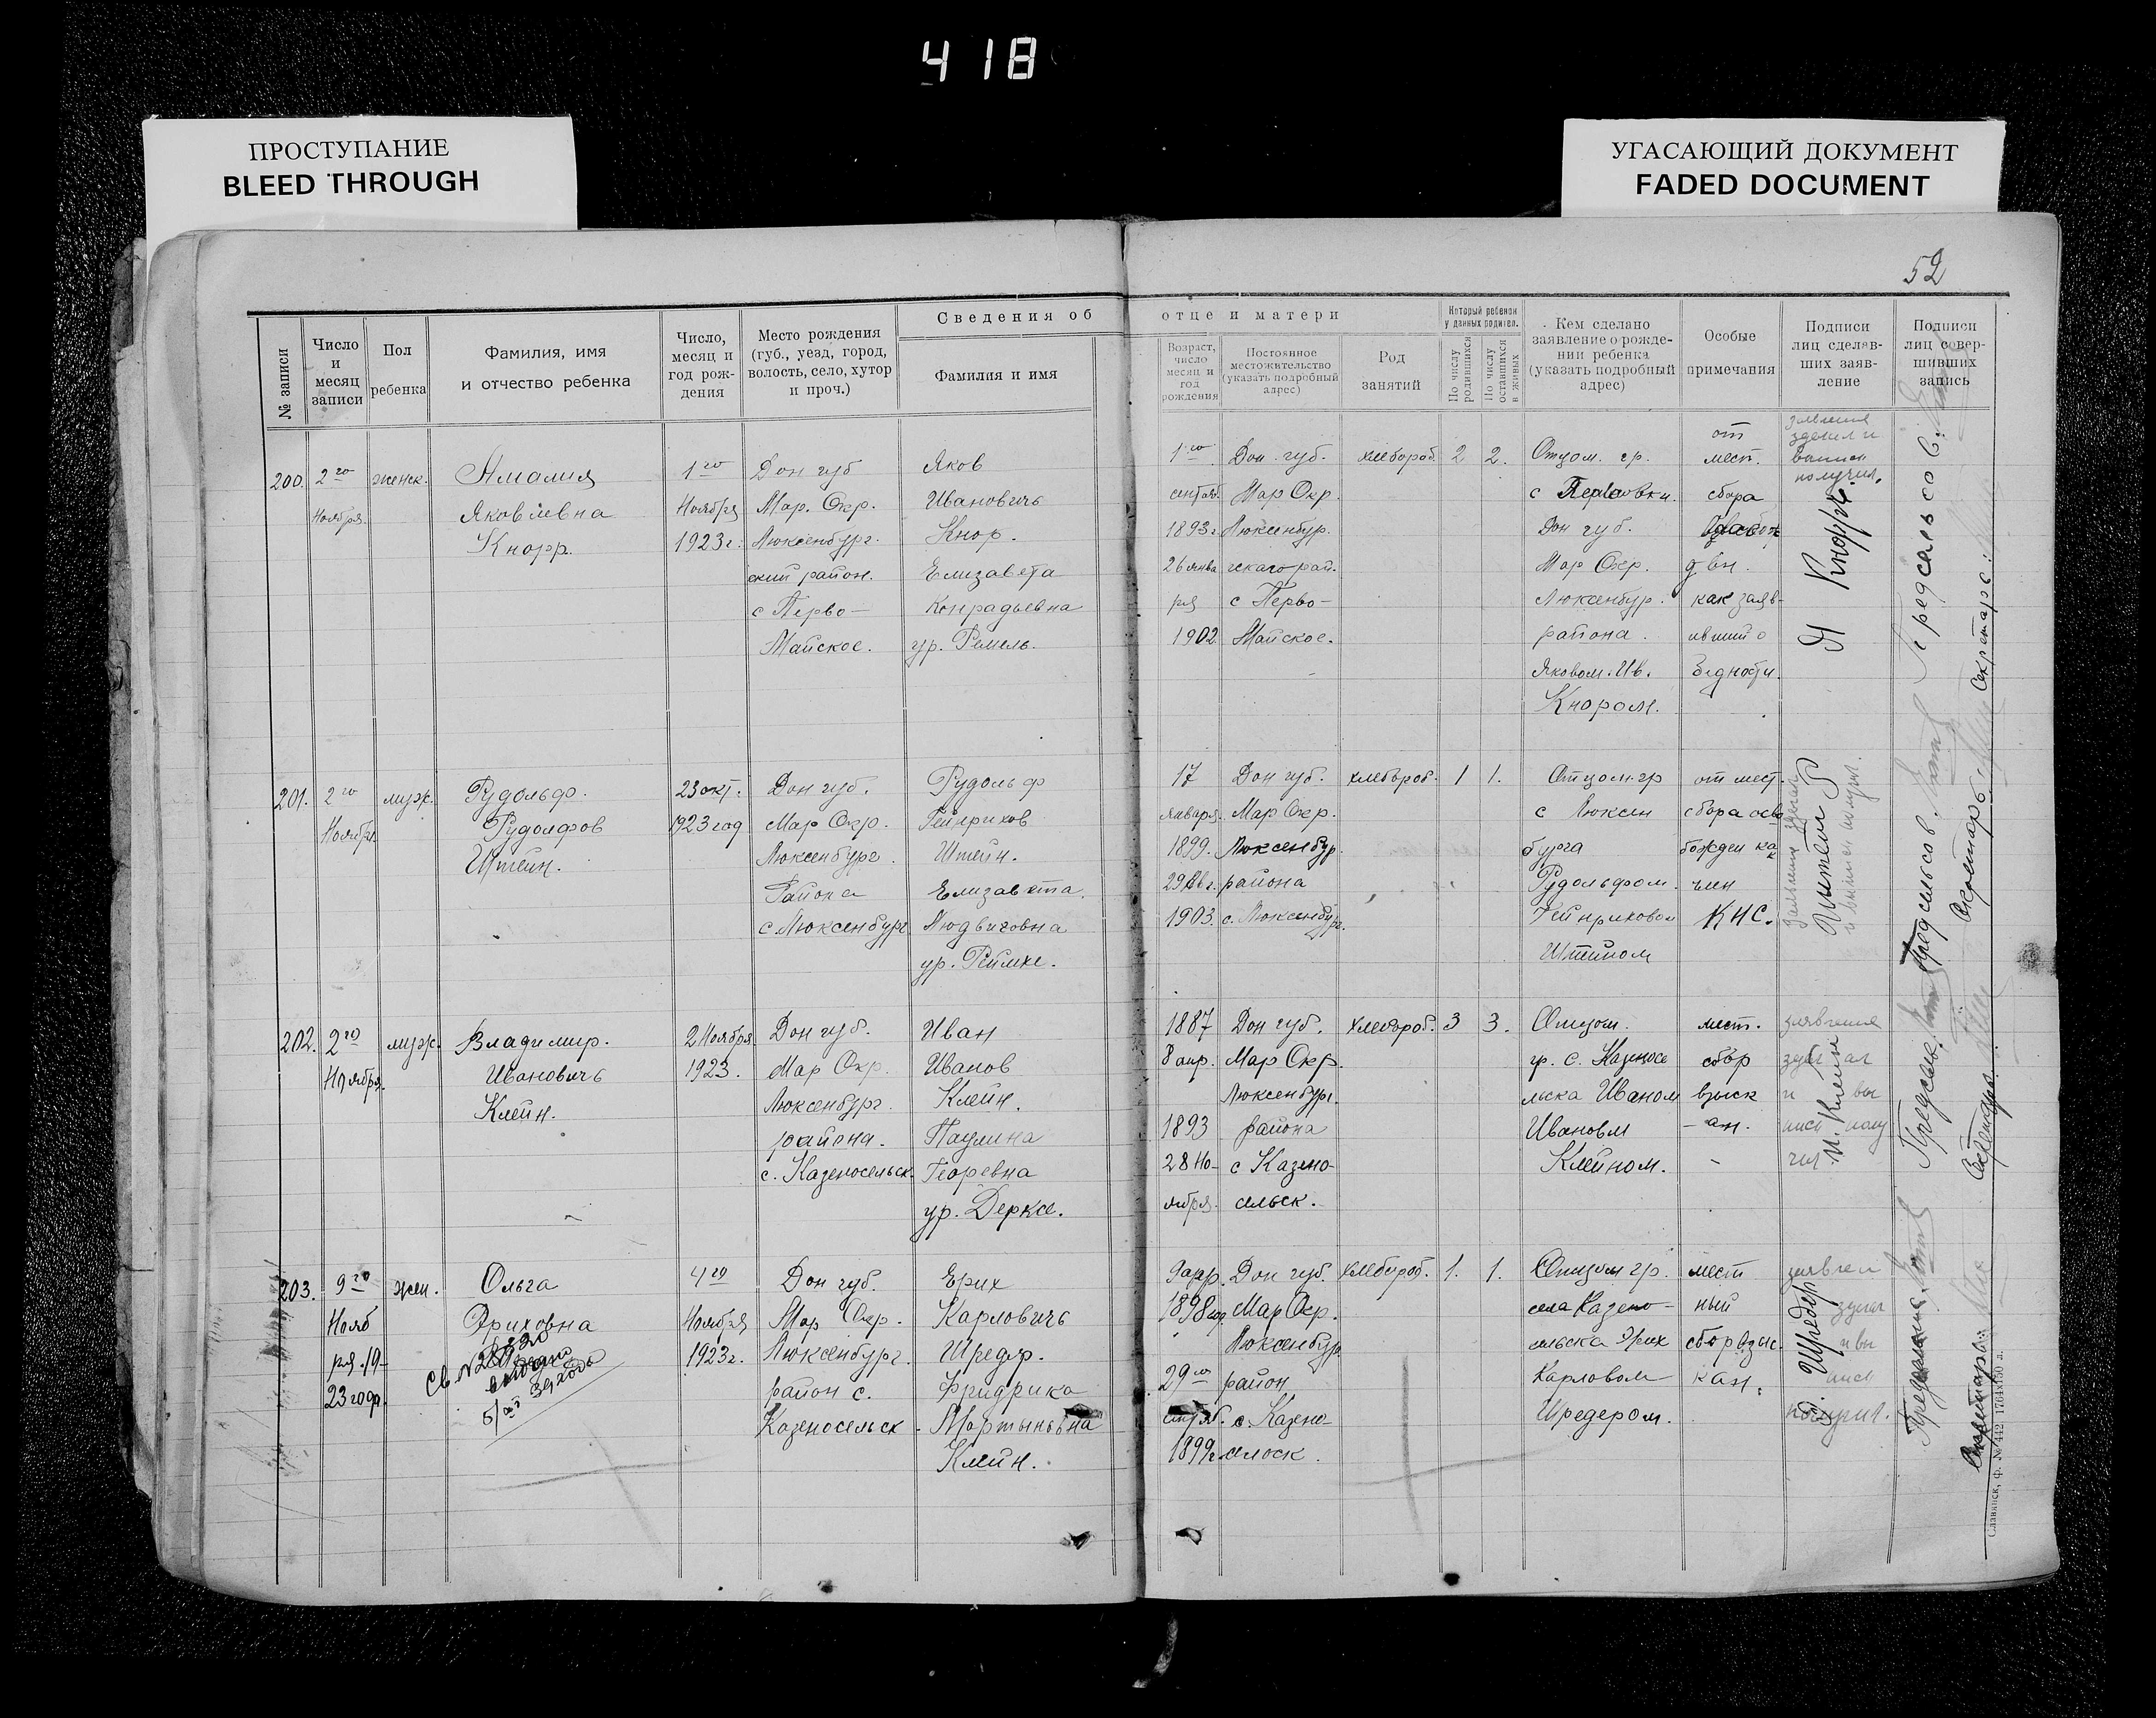 418
ПРОСТУПАНИЕ
BLEED THROUGH
УГАСАЮЩИЙ ДОКУМЕНТ
FADED DOCUMENT
52
№ записи
Число и месяц записи
Пол ребенка
Фамилия, имя и отчество ребенка
Число, месяц и год рождения
Место рождения (губ., уезд, город, волость, село, хутор и проч.)
Сведения об отце и матери
Фамилия и имя
Возраст, число месяц и год рождения
Постоянное местожительство (указать подробный адрес)
Род занятий
Который ребенок у данных родител.
По числу родившихся
По числу оставшихся в живых
Кем сделано заявление о рождении ребенка (указать подробный адрес)
Особые примечания
Подписи лиц сделавших заявление
Подписи лиц совершивших запись
200.
2го
Ноября
женск.
Амалия
Яковлевна
Кнорр.
1го
Ноября
1923г.
Дон губ
Мар. Окр.
Люксенбург.
ский район.
с Перво-
Майское.
Яков
Ивановичь
Кнор.
Елизавета
Конрадьевна
ур. Ремель.
1го
сентяб.
1893г
26 янва
ря
1902.
Дон. губ.
Мар Окр.
Люксенбур.
гскаго рай.
с Перво-
Майское.
хлебороб.
2
2.
Отцом. гр.
с
Дон губ.
Мар Окр.
Люксенбур.
района.
Яковом. Ив.
Кнором.
от
мест.
сбора
как заяв-
ивший о
бедности.
Я Кнорръ
Предсельсов.
Секретарь:
201.
2го
Ноября
муж.
Рудольф.
Рудолфов
Штейн.
23 окт.
1923 год
Дон губ.
Мар Окр.
Люксенбург.
Района
с Люксенбург
Рудольф
Гейнрихов
Штейн.
Елизавета.
Людвиговна
ур. Реймхе.
17
января.
1899.
29 Авг.
1903.
Дон губ.
Мар Окр.
Люксенбур.
района
с. Люксенбург.
хлебороб.
1
1.
Отцом гр
с Люксен
бурга
Рудольфом.
Гейнриховом
Штейном
от мест.
сбора осво
божден как
член
КНС.
Предсельсов.
Секретарь.
202.
2го
Ноября.
муж.
Владимир.
Ивановичь
Клейн.
2 Ноября
1923.
Дон губ.
Мар Окр.
Люксенбург.
района.
с. Казеносельск.
Иван
Иванов
Клейн.
Паулина
Георевна
ур. Дерксе.
1887
8 апр.
1893
28 Но-
ября.
Дон губ.
Мар Окр.
Люксенбург.
района
с Казено-
сельск.
хлебороб.
3
3.
Отцом.
гр. с. Казеносе
льска Иваном
Ивановм
Клейном.
мест.
сбор
взыск
-ан.
заявления
зделал
и вы
писк полу
чил.
И. Клейн
Председ.
Секретарь.
203.
9го
Нояб
ря. 19-
23 года.
жен.
Ольга
Эриховна
4го
Ноября
1923г.
Дон губ.
Мар Окр.
Люксенбург.
район с.
Казеносельск
Ерих
Карловичь
Шредер.
Фридрика
Мартыновна
Клейн.
9 апр.
1898
29го
1899г
Дон губ.
Мар Окр.
Люксенбур
район
с. Казено
сельск.
хлебороб.
1.
1.
Отцом гр.
села Казено-
сельска Эрих
Карловом
Шредером.
мест
ный
сбор взыс.
кан.
Шредер
получил.
Секретарь.
Славянск, ф. № 442